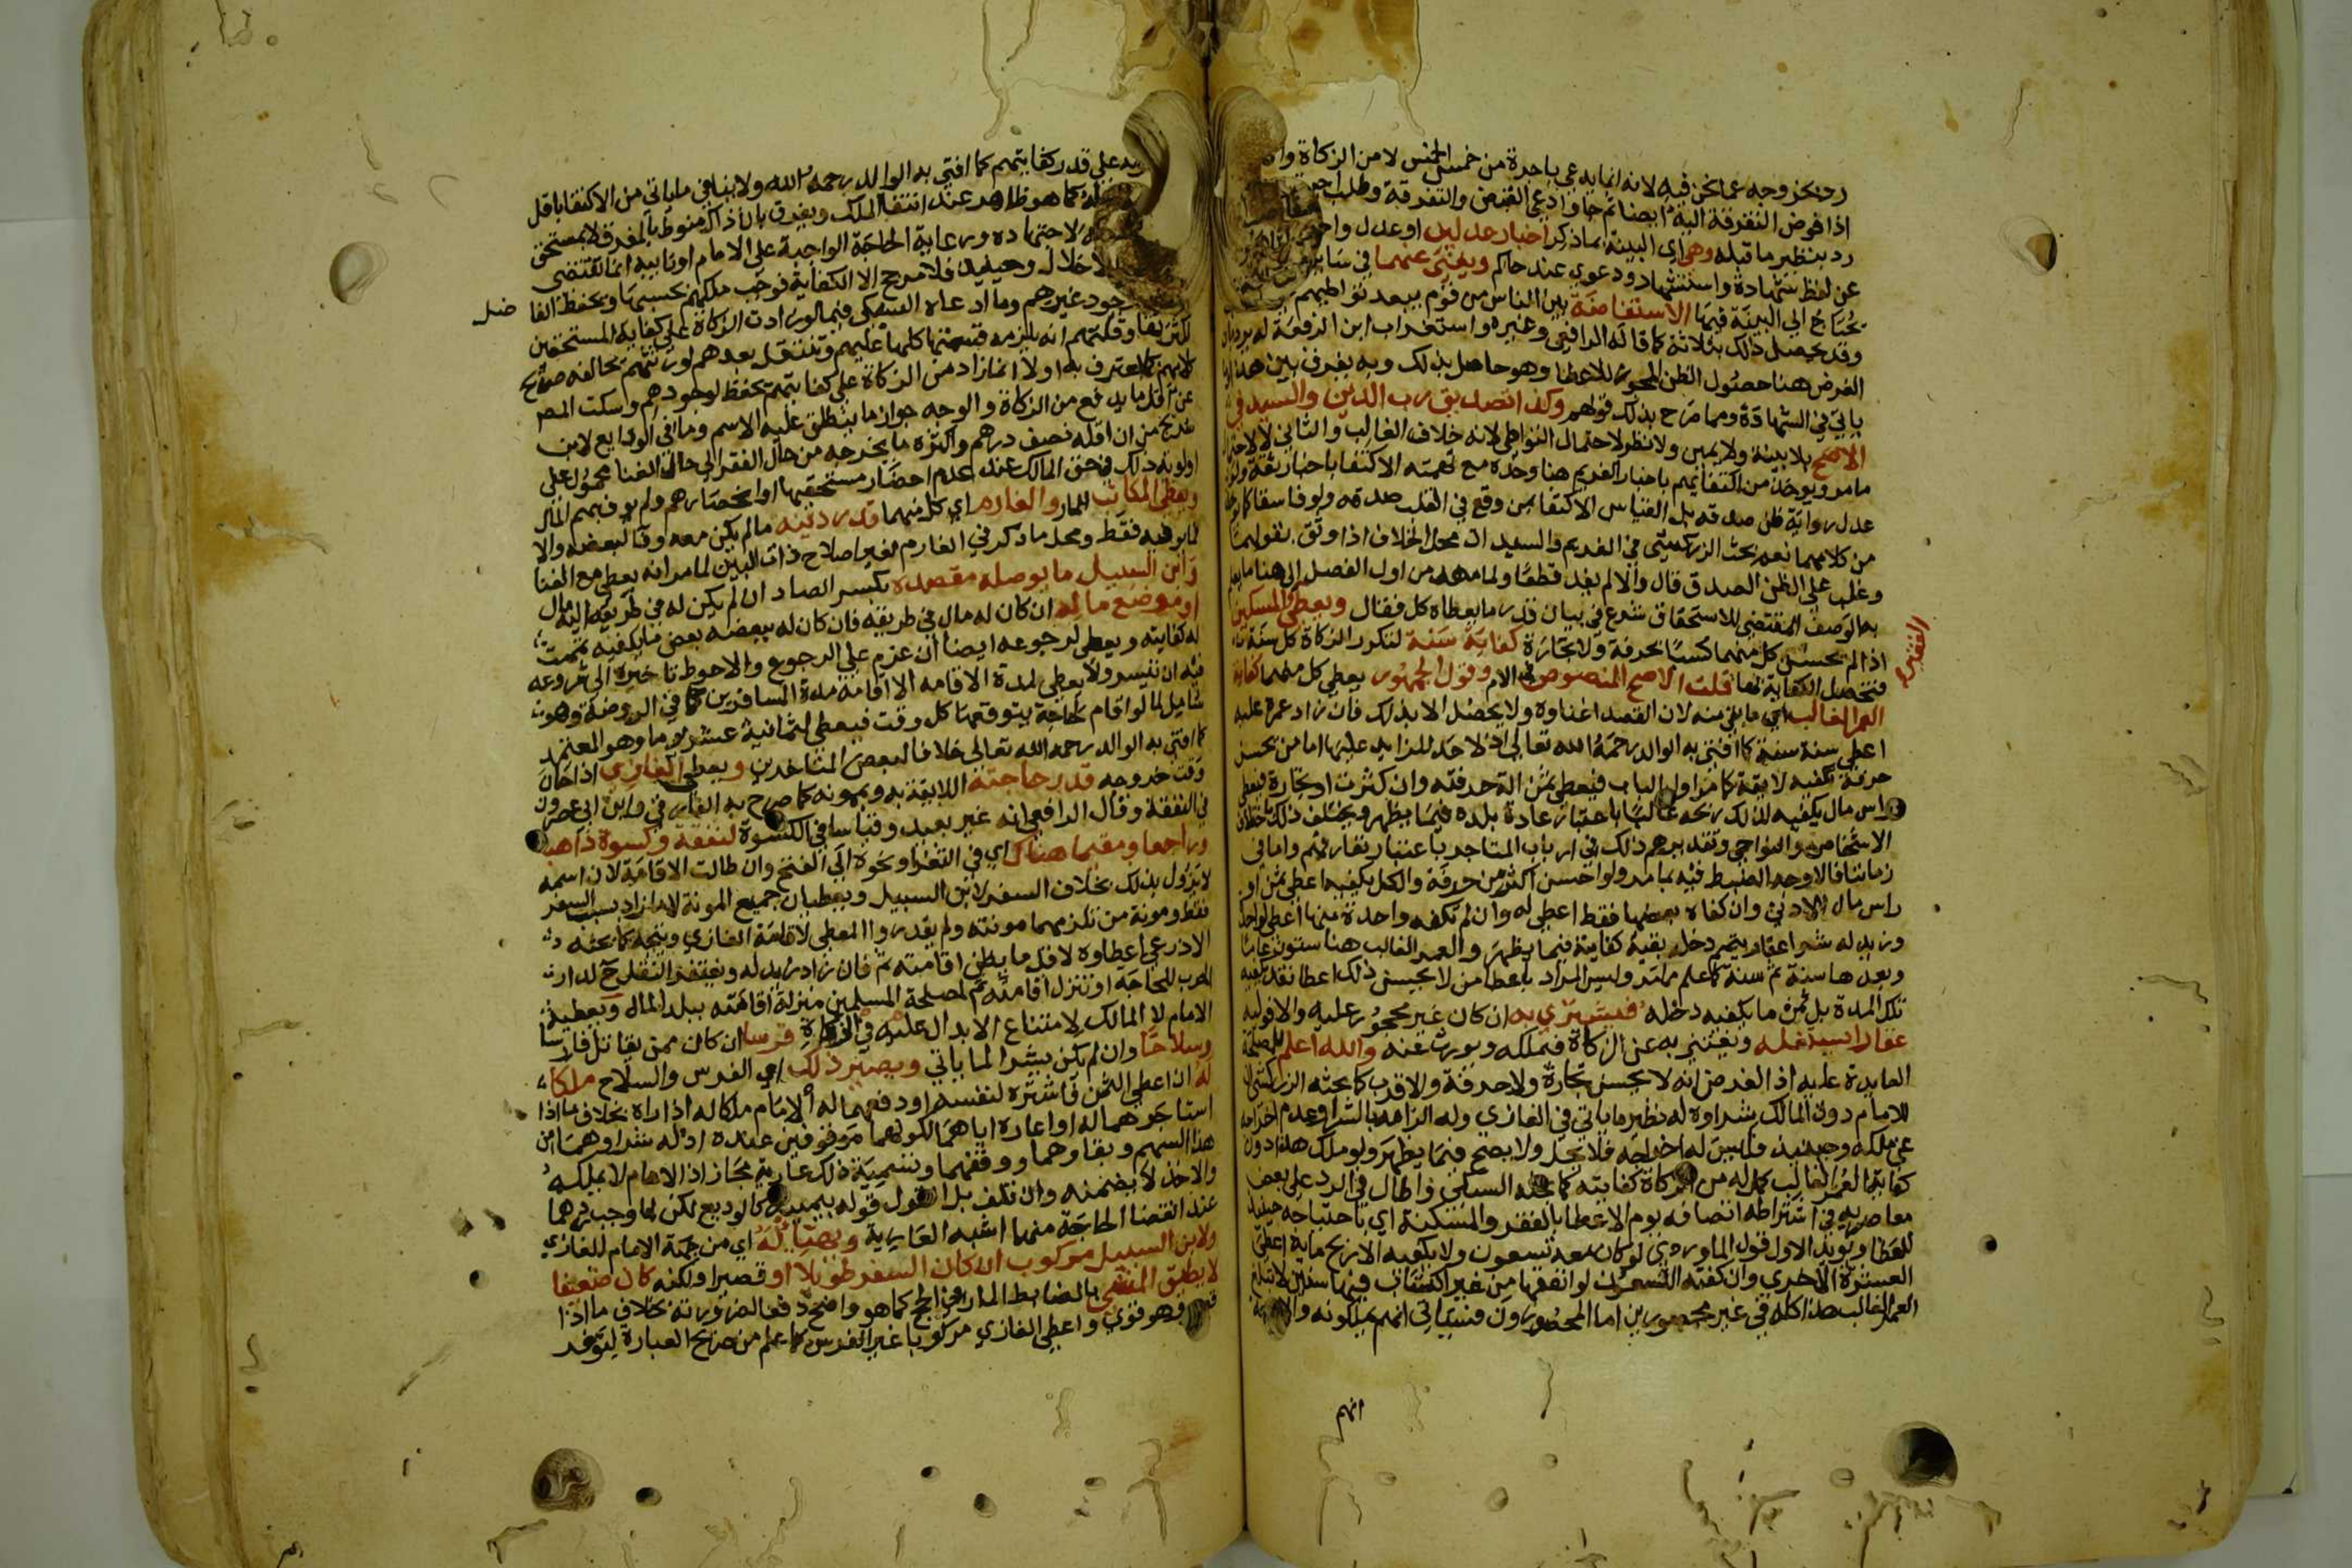 رد بخروجه عما نحن فيه لانه انما يدعي باجرة من خمس الخمس لا من الزكاة
اذا فوض التفرقة اليه ايضا ثم جا وادعى القبض والتفرقة وطلب
رد بنظير ما قبله وهي اي البينة بما ذكر اخبار عدلين او عدل
عن لفظ شهادة واستشهاد ودعوى عند حاكم ويغني عنهما في
يحتاج الى البينة فيها الاستفاضة بين الناس من قوم يبعد تواطيهم
وقد يحصل ذلك بثلاثة كما قاله الرافعي وغيره واستغراب ابن الرفعة له يرد بان
الغرض هنا حصول الظن المجوز للاعطا وهو حاصل بذلك وبه يفرق بين هذا
ياتي في الشهادة ومما صرح بذلك قولهم وكذا تصديق رب الدين والسيد في
الاصح بلا بينة ولا يمين ولا نظر لاحتمال التواطي لانه خلاف الغالب والثاني لا لاحتمال
ما مر ويوخذ من اكتفائهم باخبار الغريم هنا وحده مع تهمته الاكتفا باخبار ثقة ولو
عدل رواية ظن صدقه بل القياس الاكتفا بمن وقع في القلب صدقه ولو فاسقا كما
من كلامهما نعم بحث الزركشي في الغريم والسيد ان محل الخلاف اذا وثق بقولهما
وغلب على الظن الصدق قال والا لم يفد قطعا ولما مهد من اول الفصل الى هنا ما
به الوصف المقتضي للاستحقاق شرع في بيان قدر ما يعطاه كل فقال ويعطى والمسكين
الفقير
اذا لم يحسن كل منهما كسبا بحرفة ولا تجارة كفاية سنة لتكرر الزكاة كل سنة
فتحصل الكفاية بها قلت الاصح المنصوص في الام وقول الجمهور يعطى كل منهما كفاية
العمر الغالب اي ما بقي منه لان القصد اغناوه ولا يحصل الا بذلك فان زاد عمره عليه
اعطي سنة سنة كما افتى به الوالد رحمه الله تعالى اذ لا حد للزايد عليها اما من يحسن
حرفة تكفيه لايقة كما مر اول الباب فيعطى ثمن الة حرفته وان كثرت او تجارة فيعطى
راس مال يكفيه لذلك ربحه غالبا باعتبار عادة بلده فيما يظهر ويختلف ذلك باختلاف
الاشخاص والنواحي وتقديرهم ذلك في ارباب المتاجر باعتبار تعارفهم واما في
زماننا فالاوجه الضبط فيه بما مر ولو احسن اكثر من حرفة والكل يكفيه اعطي ثمن او
راس مال الادنى وان كفاه بعضها فقط اعطي له وان لم تكفه واحدة منها اعطي لواحدة
وزيد له شرا عقار يتمم دخله بقية كفايته فيما يظهر والعمر الغالب هنا ستون عاما
وبعدها سنة ثم سنة كما علم مما مر وليس المراد باعطا من لا يحسن ذلك اعطا نقد يكفيه
تلك المدة بل ثمن ما يكفيه دخله فيشتري به ان كان غير محجور عليه والا فوليه
عقارا يستغله ويغتني به عن الزكاة فيملكه ويورث عنه والله اعلم للمصلحة
العايدة عليه اذ الفرض انه لا يحسن تجارة ولا حرفة والاقرب كما بحثه الزركشي ان
للامام دون المالك شراوه له نظير ما ياتي في الغازي وله الزامه بالشرا وعدم اخراجه
عن ملكه وحينيذ فليس له اخراجه فلا يحل ولا يصح فيما يظهر ولو ملك هذا دون
كفاية العمر الغالب كمل له من الزكاة كفايته كما بحثه السبكي واطال في الرد على بعض
معاصريه في اشتراطه اتصافه يوم الاعطا بالفقر والمسكنة اي باحتياجه حينيذ
للعطا ويويد الاول قول الماوردي لو كان معه تسعون ولا يكفيه الا ربح ماية اعطي
العشرة الاخرى وان كفته التسعون لو انفقها من غير اكتساب فيها سنين لا تبلغ
العمر الغالب هذا كله في غير محصورين اما المحصورون فسياتي انهم يملكونه
انهم
على قدر كفايتهم كما افتى به الوالد رحمه الله ولا ينافي ما ياتي من الاكتفا باقل
كما هو ظاهر عند انتفا الملك ويفرق بان ذاك منوط بالمفرق لا بمستحق
لاجتهاده ورعاية الحاجة الواجبة على الامام او نايبه انما تقتضي
الاخلال وحينيذ فلا مرجح الا الكفاية فوجب ملكهم بحسبها ويحفظ الفا
ضل
وجود غيرهم وما ادعاه السبكي فيما لو زادت الزكاة على كفاية المستحقين
لكثرتها وقلتهم انه يلزمه قسمتها كلها عليهم وتنتقل بعدهم لورثتهم تخالفه صرايح
كلامهم كما اعترف به اولا ان ما زاد من الزكاة على كفايتهم تحفظ لوجودهم وسكت المص
عن اقل ما يدفع من الزكاة والوجه جواز ما ينطلق عليه الاسم وما في الودايع لابن
شريح من ان اقله نصف درهم واكثره ما يخرجه من حال الفقر الى حال الغنا محمول على
اولوية ذلك في حق المالك عند عدم احصار مستحقيها او انحصارهم ولم يوف بهم المال
ويعطى المكاتب المار والغارم اي كل منهما قدر دينه ما لم يكن معه وفا لبعضه والا
فما يوفيه فقط ومحل ما ذكر في الغارم لغير اصلاح ذات البين لما مر انه يعطى مع الغنا
وابن السبيل ما يوصله مقصده بكسر الصاد ان لم يكن له في طريقه اليه مال
او موضع ماله ان كان له مال في طريقه فان كان له ببعضه بعض ما يكفيه تممت
له كفايته ويعطى لرجوعه ايضا ان عزم على الرجوع والاحوط تاخيره الى شروعه
فيه ان تيسر ولا يعطى لمدة الاقامة الا اقامة مدة المسافرين كما في الروضة وهو
شامل لما لو اقام لحاجة يتوقعها كل وقت فيعطى لثمانية عشر يوما وهو المعتمد
كما افتى به الوالد رحمه الله تعالى خلافا لبعض المتاخرين ويعطى الغازي اذا حان
وقت خروجه قدر حاجته اللايقة به وبممونه كما صرح به الفارقي وابن ابي عصرون
في النفقة وقال الرافعي انه غير بعيد وقياسا في الكسوة لنفقة وكسوة ذاهبا
وراجعا ومقيما هناك اي في الثغر او نحوه الى الفتح وان طالت الاقامة لان اسمه
لا يزول بذلك بخلاف السفر لابن السبيل ويعطيان جميع المونة لا ما زاد بسبب السفر
فقط ومونة من تلزمهما مونته ولم يقدروا المعطى لاقامة الغازي ويتجه كما بحثه
الاذرعي اعطاوه لاقل ما يظن اقامته ثم فان زاد زيد له ويغتفر النقل ح لدار
الحرب للحاجة او تنزل اقامته ثم لمصلحة المسلمين منزلة اقامته ببلد المال ويعطيه
الامام لا المالك لامتناع الابدال عليه في الزكاة فرسا ان كان ممن يقاتل فارسا
وسلاحا وان لم يكن بشرا لما ياتي ويصير ذلك اي الفرس والسلاح ملكا
له ان اعطي الثمن فاشتره لنفسه او دفعهما له الامام ملكا له اذا راه بخلاف ما اذا
استاجرهما له او اعاره اياهما لكونهما موقوفين عنده اذ له شراوهما من
هذا السهم وبقاوهما ووقفهما وتسمية ذلك عارية مجاز اذ الامام لا يملكه
والاخذ لا يضمنه وان تلف بل القول قوله بيمينه كالوديع لكن لما وجب ردهما
عند انقضا الحاجة منها اشبه العارية ويهيا له اي من جهة الامام للغازي
ولابن السبيل مركوب ان كان السفر طويلا او قصيرا ولكنه كان ضعيفا
لا يطيق المشي بالضابط المار في الحج كما هو واضح دفعا لضرورته بخلاف ما اذا
وهو قوي واعطي الغازي مركوبا غير الفرس كما علم من صريح العبارة ليتوفر